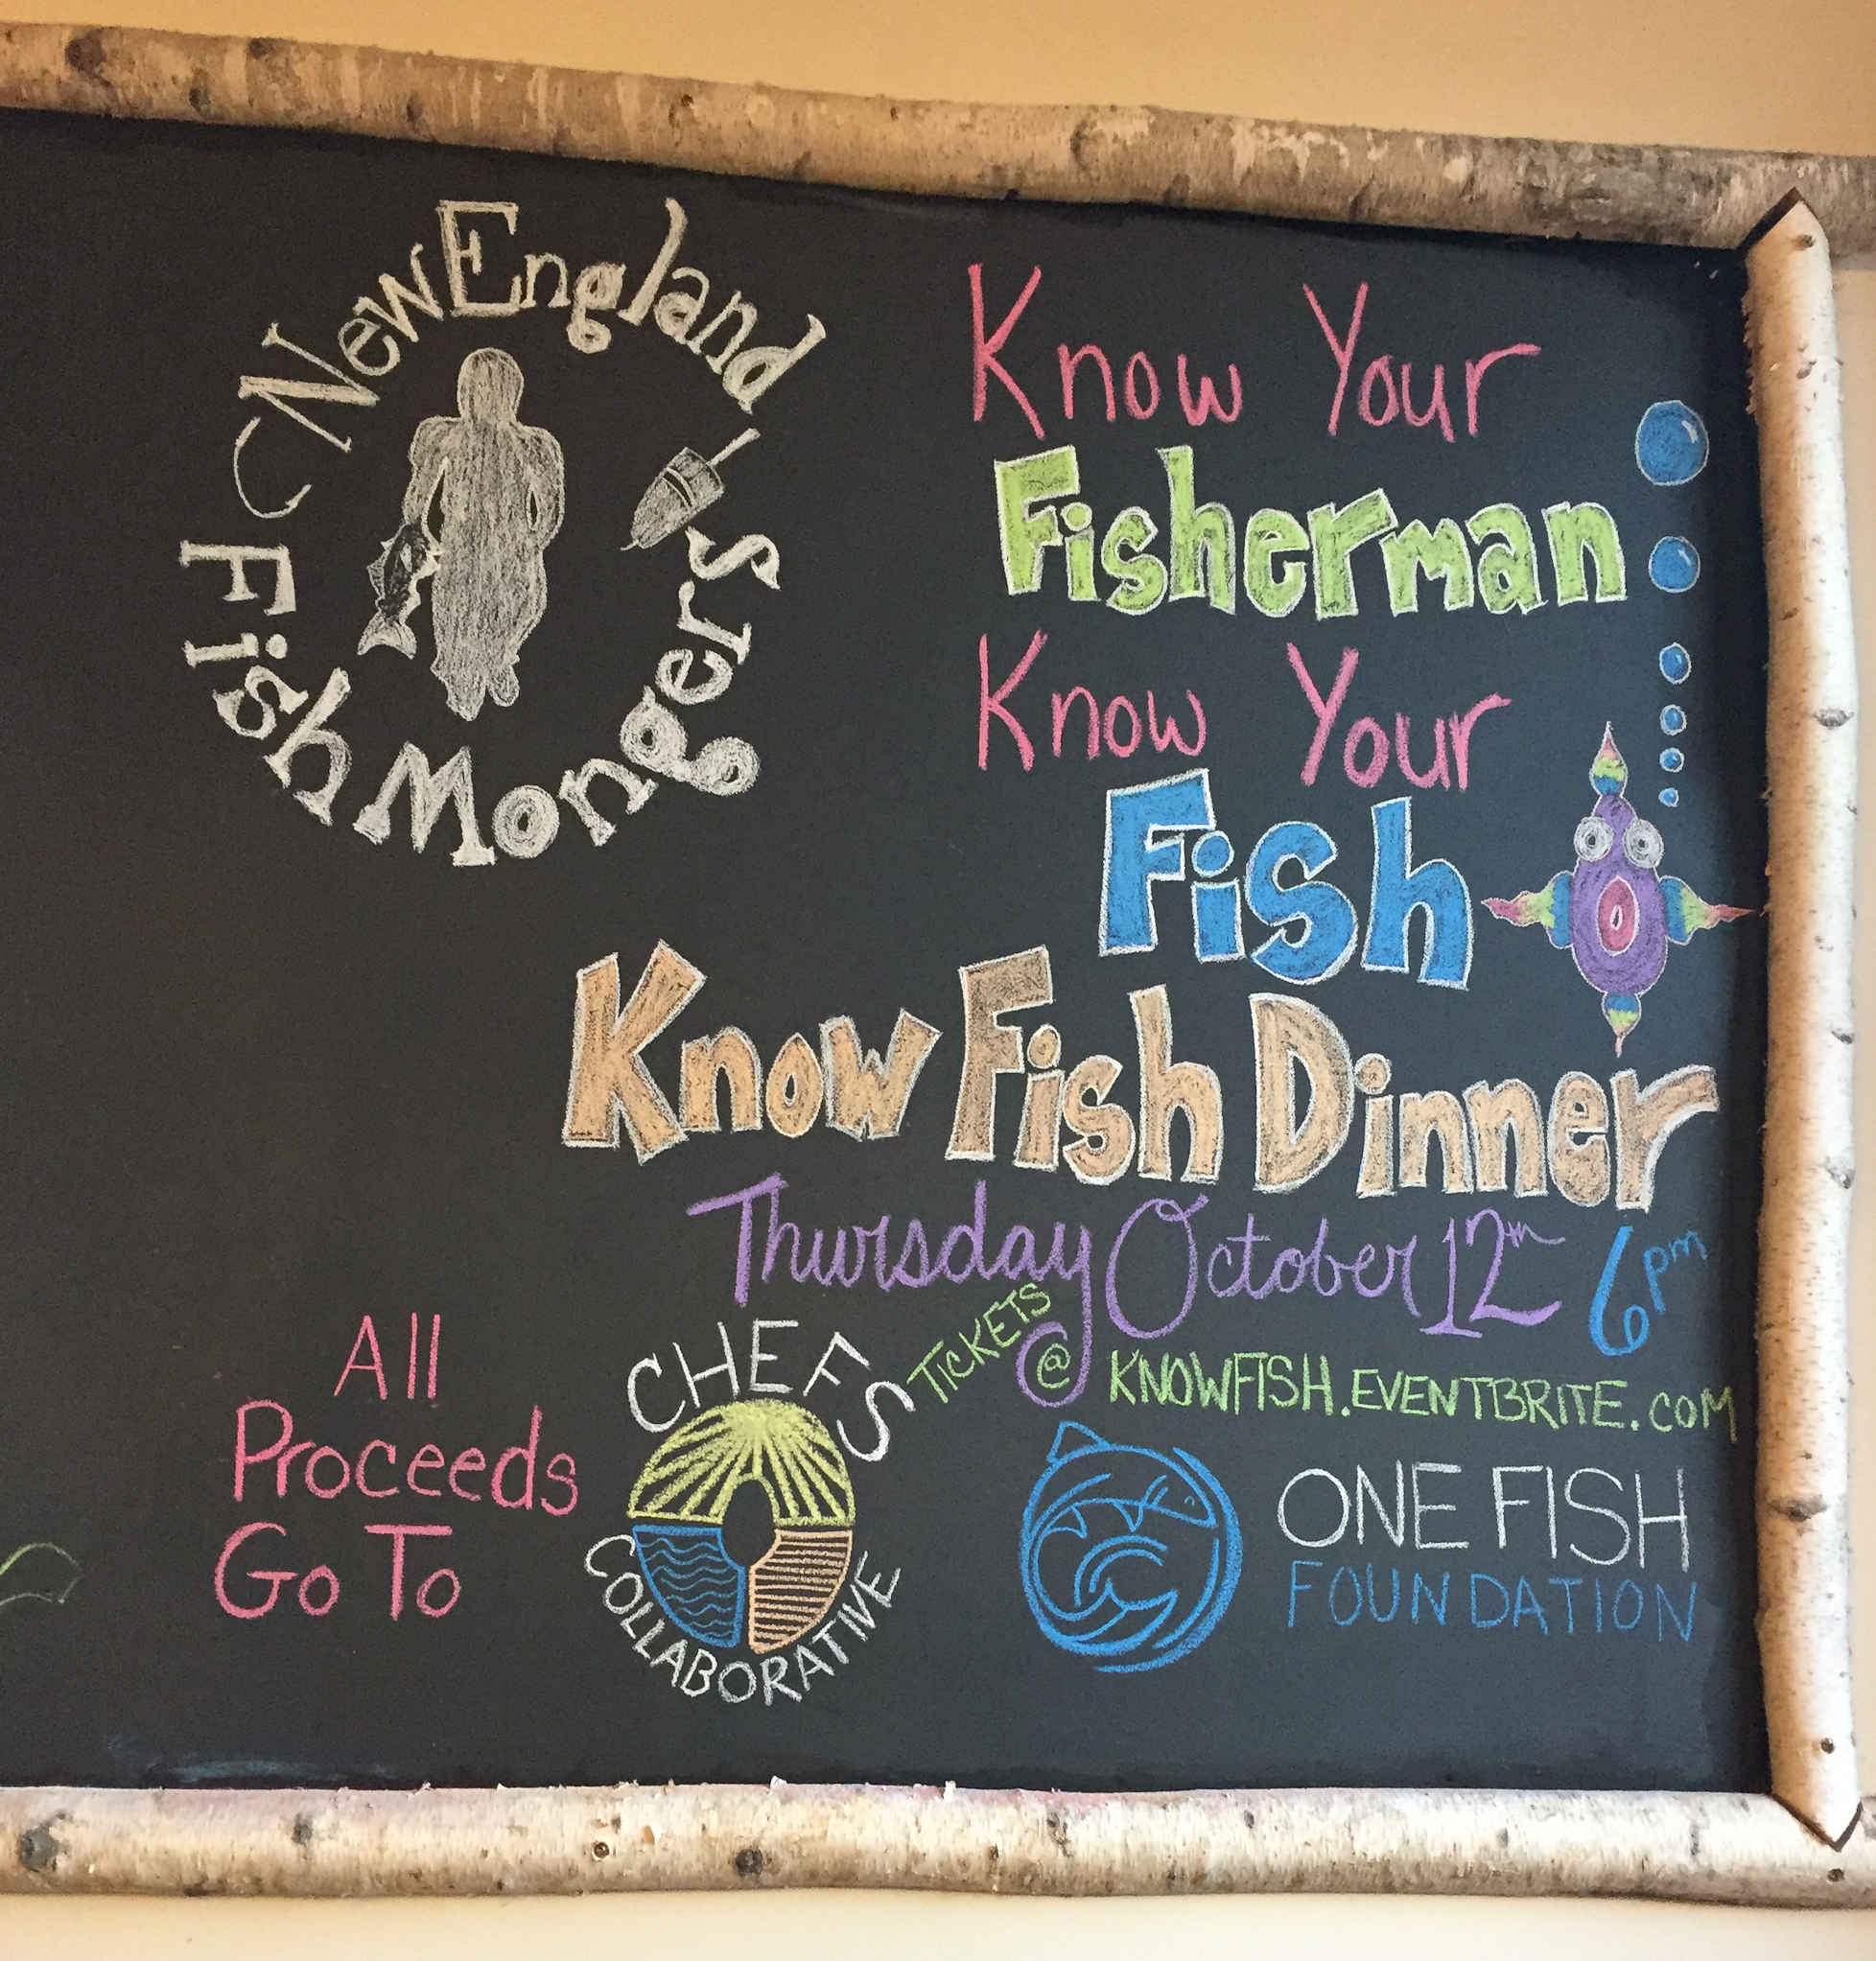 New England
Fishmongers
Know Your
Fisherman
Know Your
Fish
Know Fish Dinner
Thursday October 12th 6pm
TICKETS
@ KNOWFISH.EVENTBRITE.COM
All
Proceeds
Go To
CHEFS
COLLABORATIVE
ONE FISH
FOUNDATION